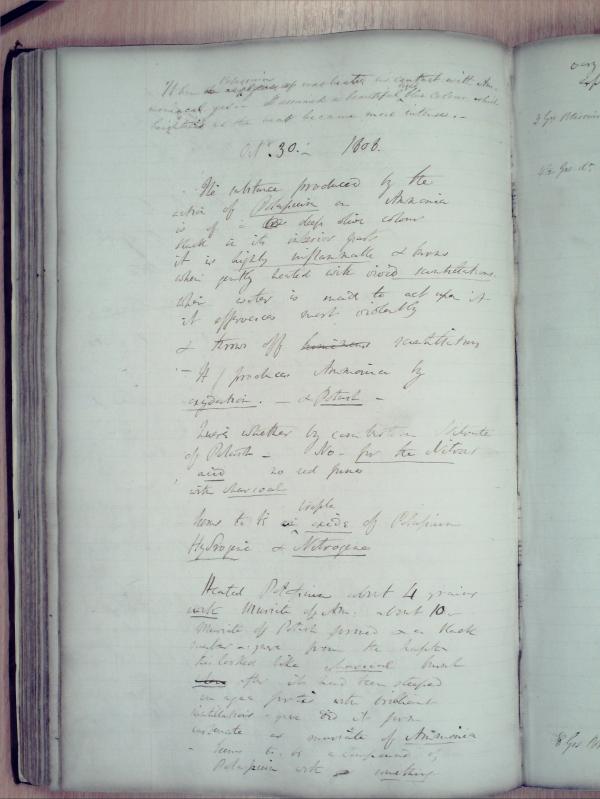 When Potassium was heated in contact with Am-
moniacal gas - It assumed a beautiful blue colour which
brightened as the heat became more intense. -
Oct. 30. - 1808.
The substance produced by the
action of Potassium on Ammonia
is of a deep olive colour
black in its interior parts
it is highly inflammable & burns
when gently heated with vivid scintillations.
When water is made to act upon it
it effervesces most violently
& throws off luminous scintillations
- It produces Ammonia by
oxydation. - & Potash -
whether by combustion Nitrate
of Potash - No - for the Nitrous
acid no red fumes
with charcoal
triple
Seems to be an oxide of Potassium
Hydrogene & Nitrogene
Heated Potassium about 4 grains
with Muriate of Am: about 10 -
Muriate of Potash formed & a black
matter gave from the
this looked like charcoal burnt
after it had been steeped
in aqua fortis with brilliant
scintillations gave did it form
carbonate or muriate of Ammonia
- Seems to be a compound of
Potassium with something
3 Grs Potassium
8 Grs